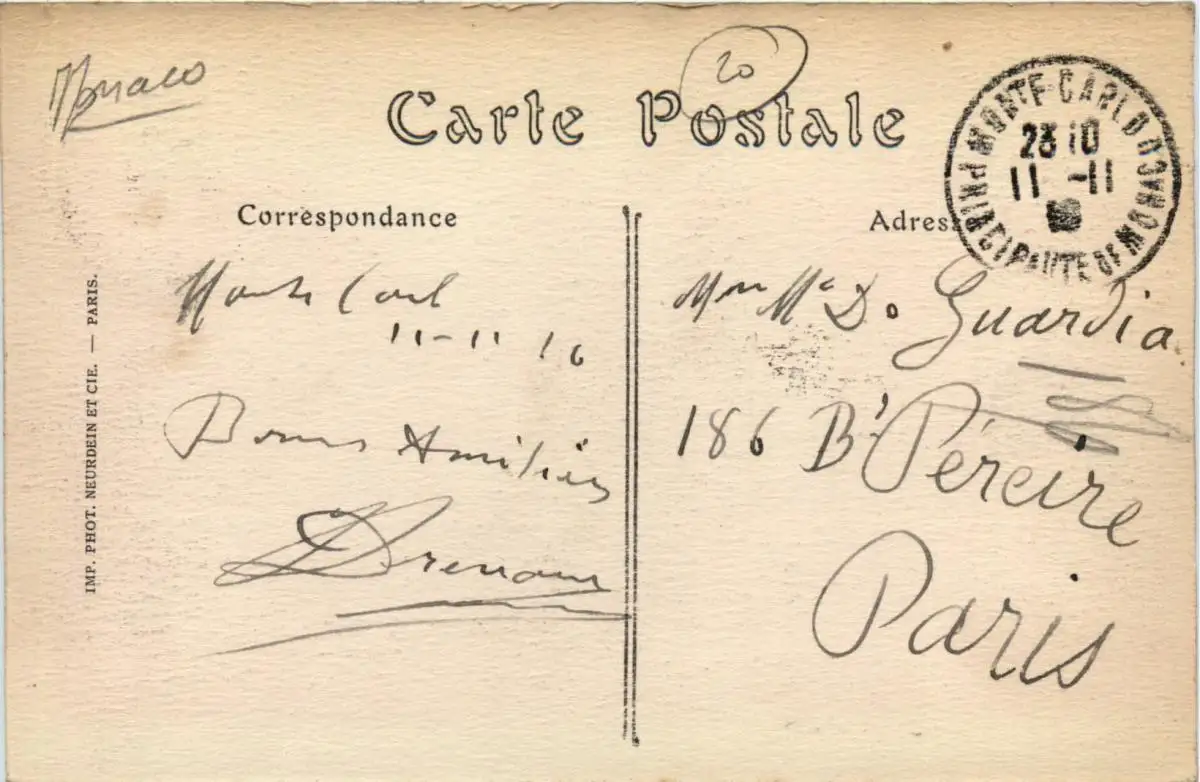 Monaco
20
Carte Postale
MONTE-CARLO
PRINCIPAUTE DE MONACO
23 10
11 -11
Correspondance
Adres
Monte Carl
11-11 16
Bonnes Amitiés
Guardia
186 Bd Péreire
Paris
IMP. PHOT. NEURDEIN ET CIE. — PARIS.